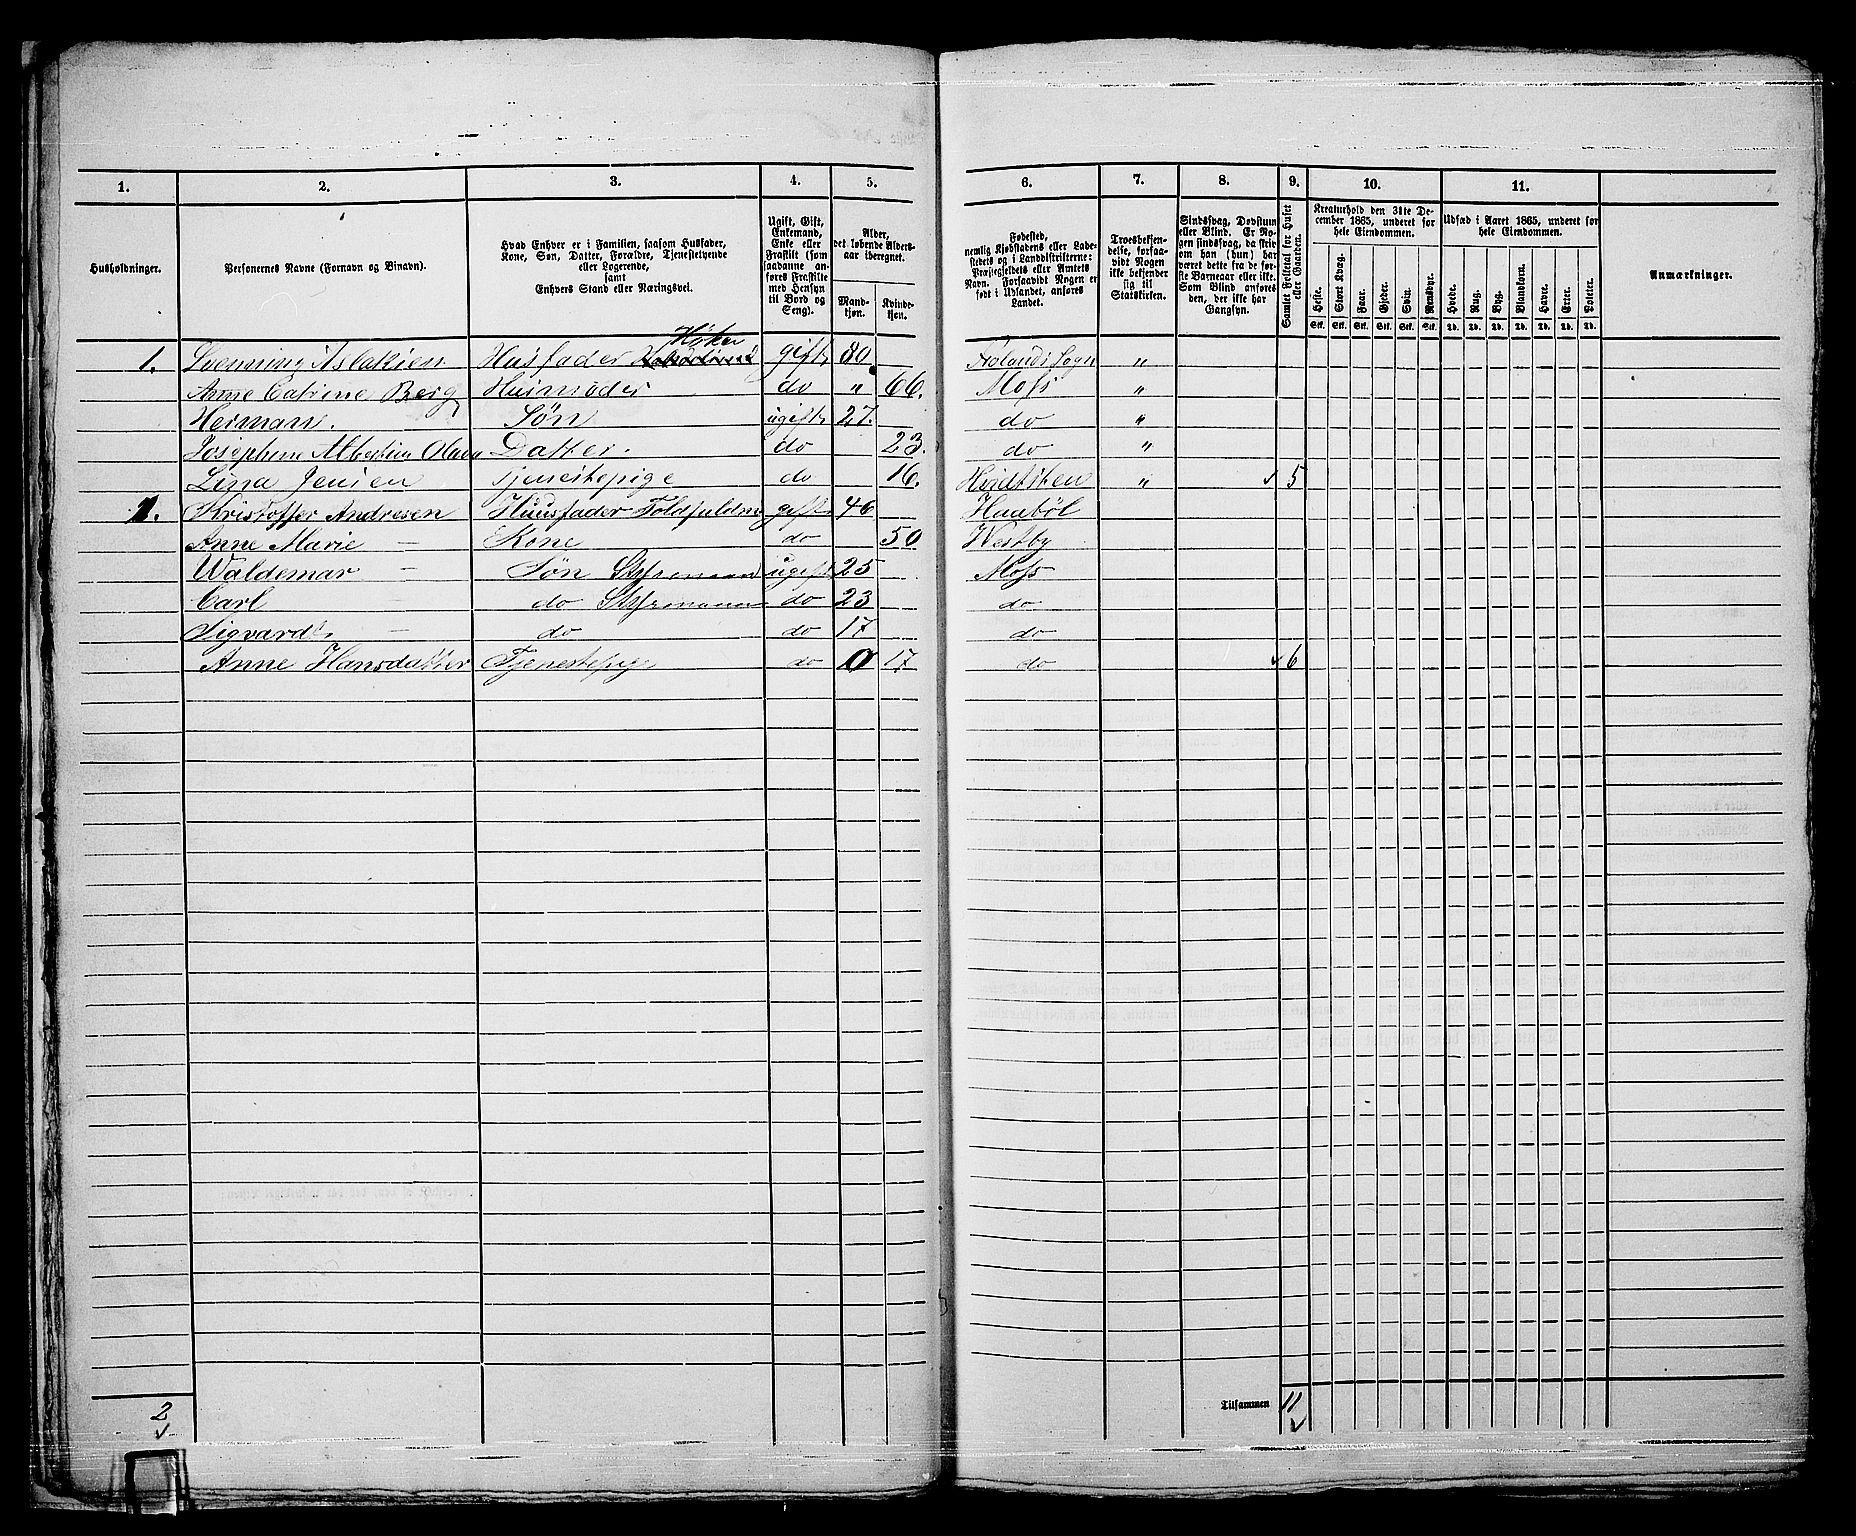 1. 2. 3. 4. 5. 6. 7. 8. 9. 10. 11.
Husholdninger.
Personernes Navne (Fornavn og Binavn).
Hvad Enhver er i Familien, saasom Husfader,
Kone, Søn, Datter, Forældre, Tjenestetyende
eller Logerende,
samt
Enhvers Stand eller Næringsvei.
Ugift, Gift,
Enkemand,
Enke eller
Fraskilt (som
saadanne an-
føres Fraskilte
med Hensyn
til Bord og
Seng).
Alder,
det løbende Alders-
aar iberegnet.
Mand-
kjøn.
Kvinde-
kjøn.
Fødested,
nemlig Kjøbstadens eller Lade-
stedets og i Landdistrikterne:
Præstegjeldets eller Amtets
Navn. Forsaavidt Nogen er
født i Udlandet, anføres
Landet.
Troesbekjen-
delse, forsaa-
vidt Nogen
ikke bekjender
sig til
Statskirken.
Sindssvag, Døvstum
eller Blind. Er No-
gen sindssvag, da skriv
om han (hun) har
været dette fra de før-
ste Barneaar eller ikke.
Som Blind anføres
den, der ikke har
Gangsyn.
Samlet Folketal for Huset
eller Gaarden.
Kreaturhold den 31te De-
cember 1865, underet for
hele Eiendommen.
Heste. Stort Kvæg. Faar. Gjeder. Sviin. Rensdyr.
Stk. Stk. Stk. Stk. Stk. Stk.
Udsæd i Aaret 1865, underet for
hele Eiendommen.
Hvede. Rug. Byg. Blandkorn. Havre. Erter. Poteter.
Td. Td. Td. Td. Td. Td. Td.
Anmærkninger.
Høker
1. Svenning Aslaksen Husfader gift 80 Sogn "
Anne Catrine Berg Husmoder do " 66. Moss "
Herman. Søn ugift 27. do "
Josephine Albertine Olava Datter. do 23. do "
Lina Jensen Tjenestepige do 16. " 5
1. Kristoffer Andresen Huusfader gift 46
Anne Marie — Kone do 50 Westby
Waldemar — Søn Styrmand ugift 25 Moss
Carl do Styrmand do 23 do
Sigvard — do do 17 do
Anne Hansdatter Tjenestepige do 0 17 do 6
2
Tilsammen 11